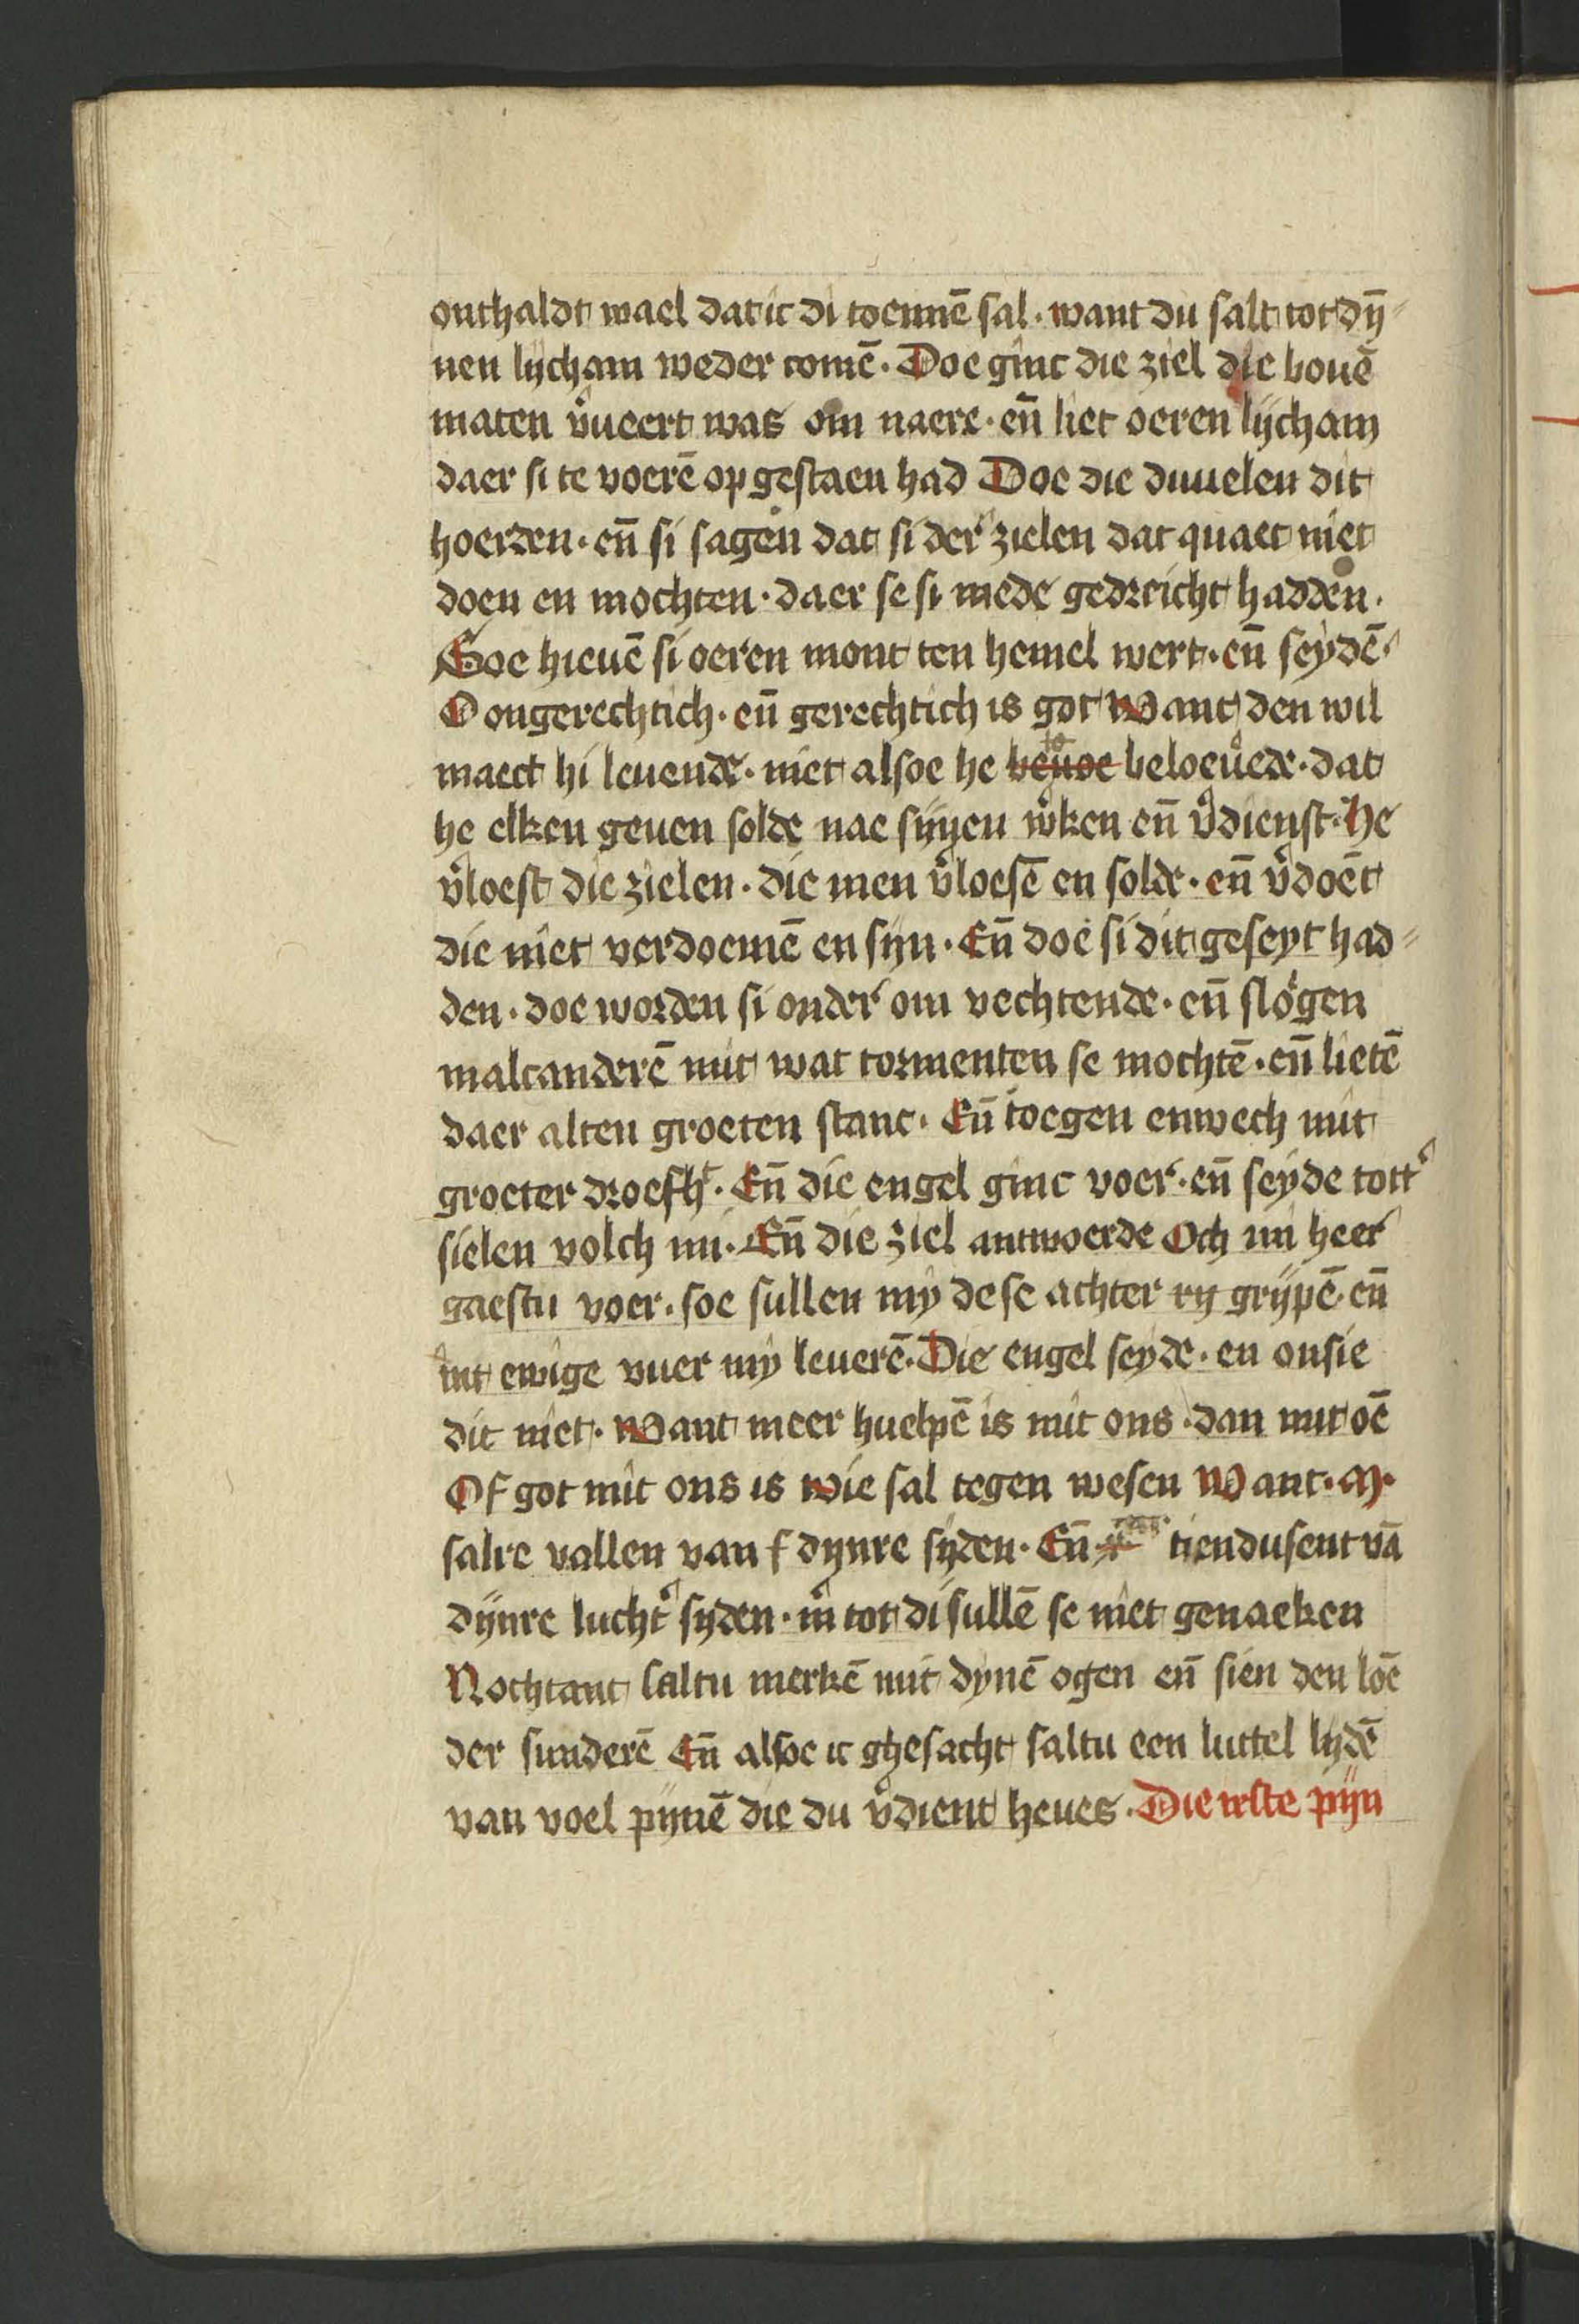 onthaldt wael dat ic di toennē sal · want du salt tot dȳ-
nen lijcham weder comē · Doe ginc die ziel die bouē
maten v̾ueert was om naere · en̄ liet oeren lijcham
daer si te voerē op gestaen had Doe die duuelen dit
hoerden · en̄ si sagen dat si der zielen dat quaet niet
doen en mochten · daer se si mede gedreicht hadden ·
Doe hieuē si oeren mont ten hemel wert · en̄ seydē ·
O ongerechtich · en̄ gerechtich is got Want den wil
maect hi leuende · niet alsoe he beloeuede · dat
he elken geuen solde nae sijnen w̾ken en̄ v̾dienst · He
v̾loest die zielen · die men v̾loesē en solde · en̄ v̾doēt
die niet verdoemē en sijn · En̄ doe si dit geseyt had-
den · doe worden si onder om vechtende · en̄ slogen
malcanderē mit wat tormenten se mochtē · en̄ lietē
daer alten groeten stanc · En̄ toegen enwech mit
groeter droefhᵗ · En̄ die engel ginc voer · en̄ seyde tott̾
sielen volch mi · En̄ die ziel antwoerde Och mi heer
gaestu voer · soe sullen my dese achter ry grijpē · en̄
int ewige vuer my leuerē · Die engel seyde · en onsie
dit niet · Want meer huelpē is mit ons · dan mit oē
Of got mit ons is wie sal tegen wesen Want · M ·
salre vallen van f dynre syden · En̄ tiendusent vā
dynre lucht̾ syden · m̾ tot di sullē se niet genaeken
Nochtant saltu merkē mit dynē ogen en̄ sien den loē
der sunderē En̄ alsoe ic ghesacht saltu een luttel lydē
van voel pynē die du v̾dient heues · Die irste pijn